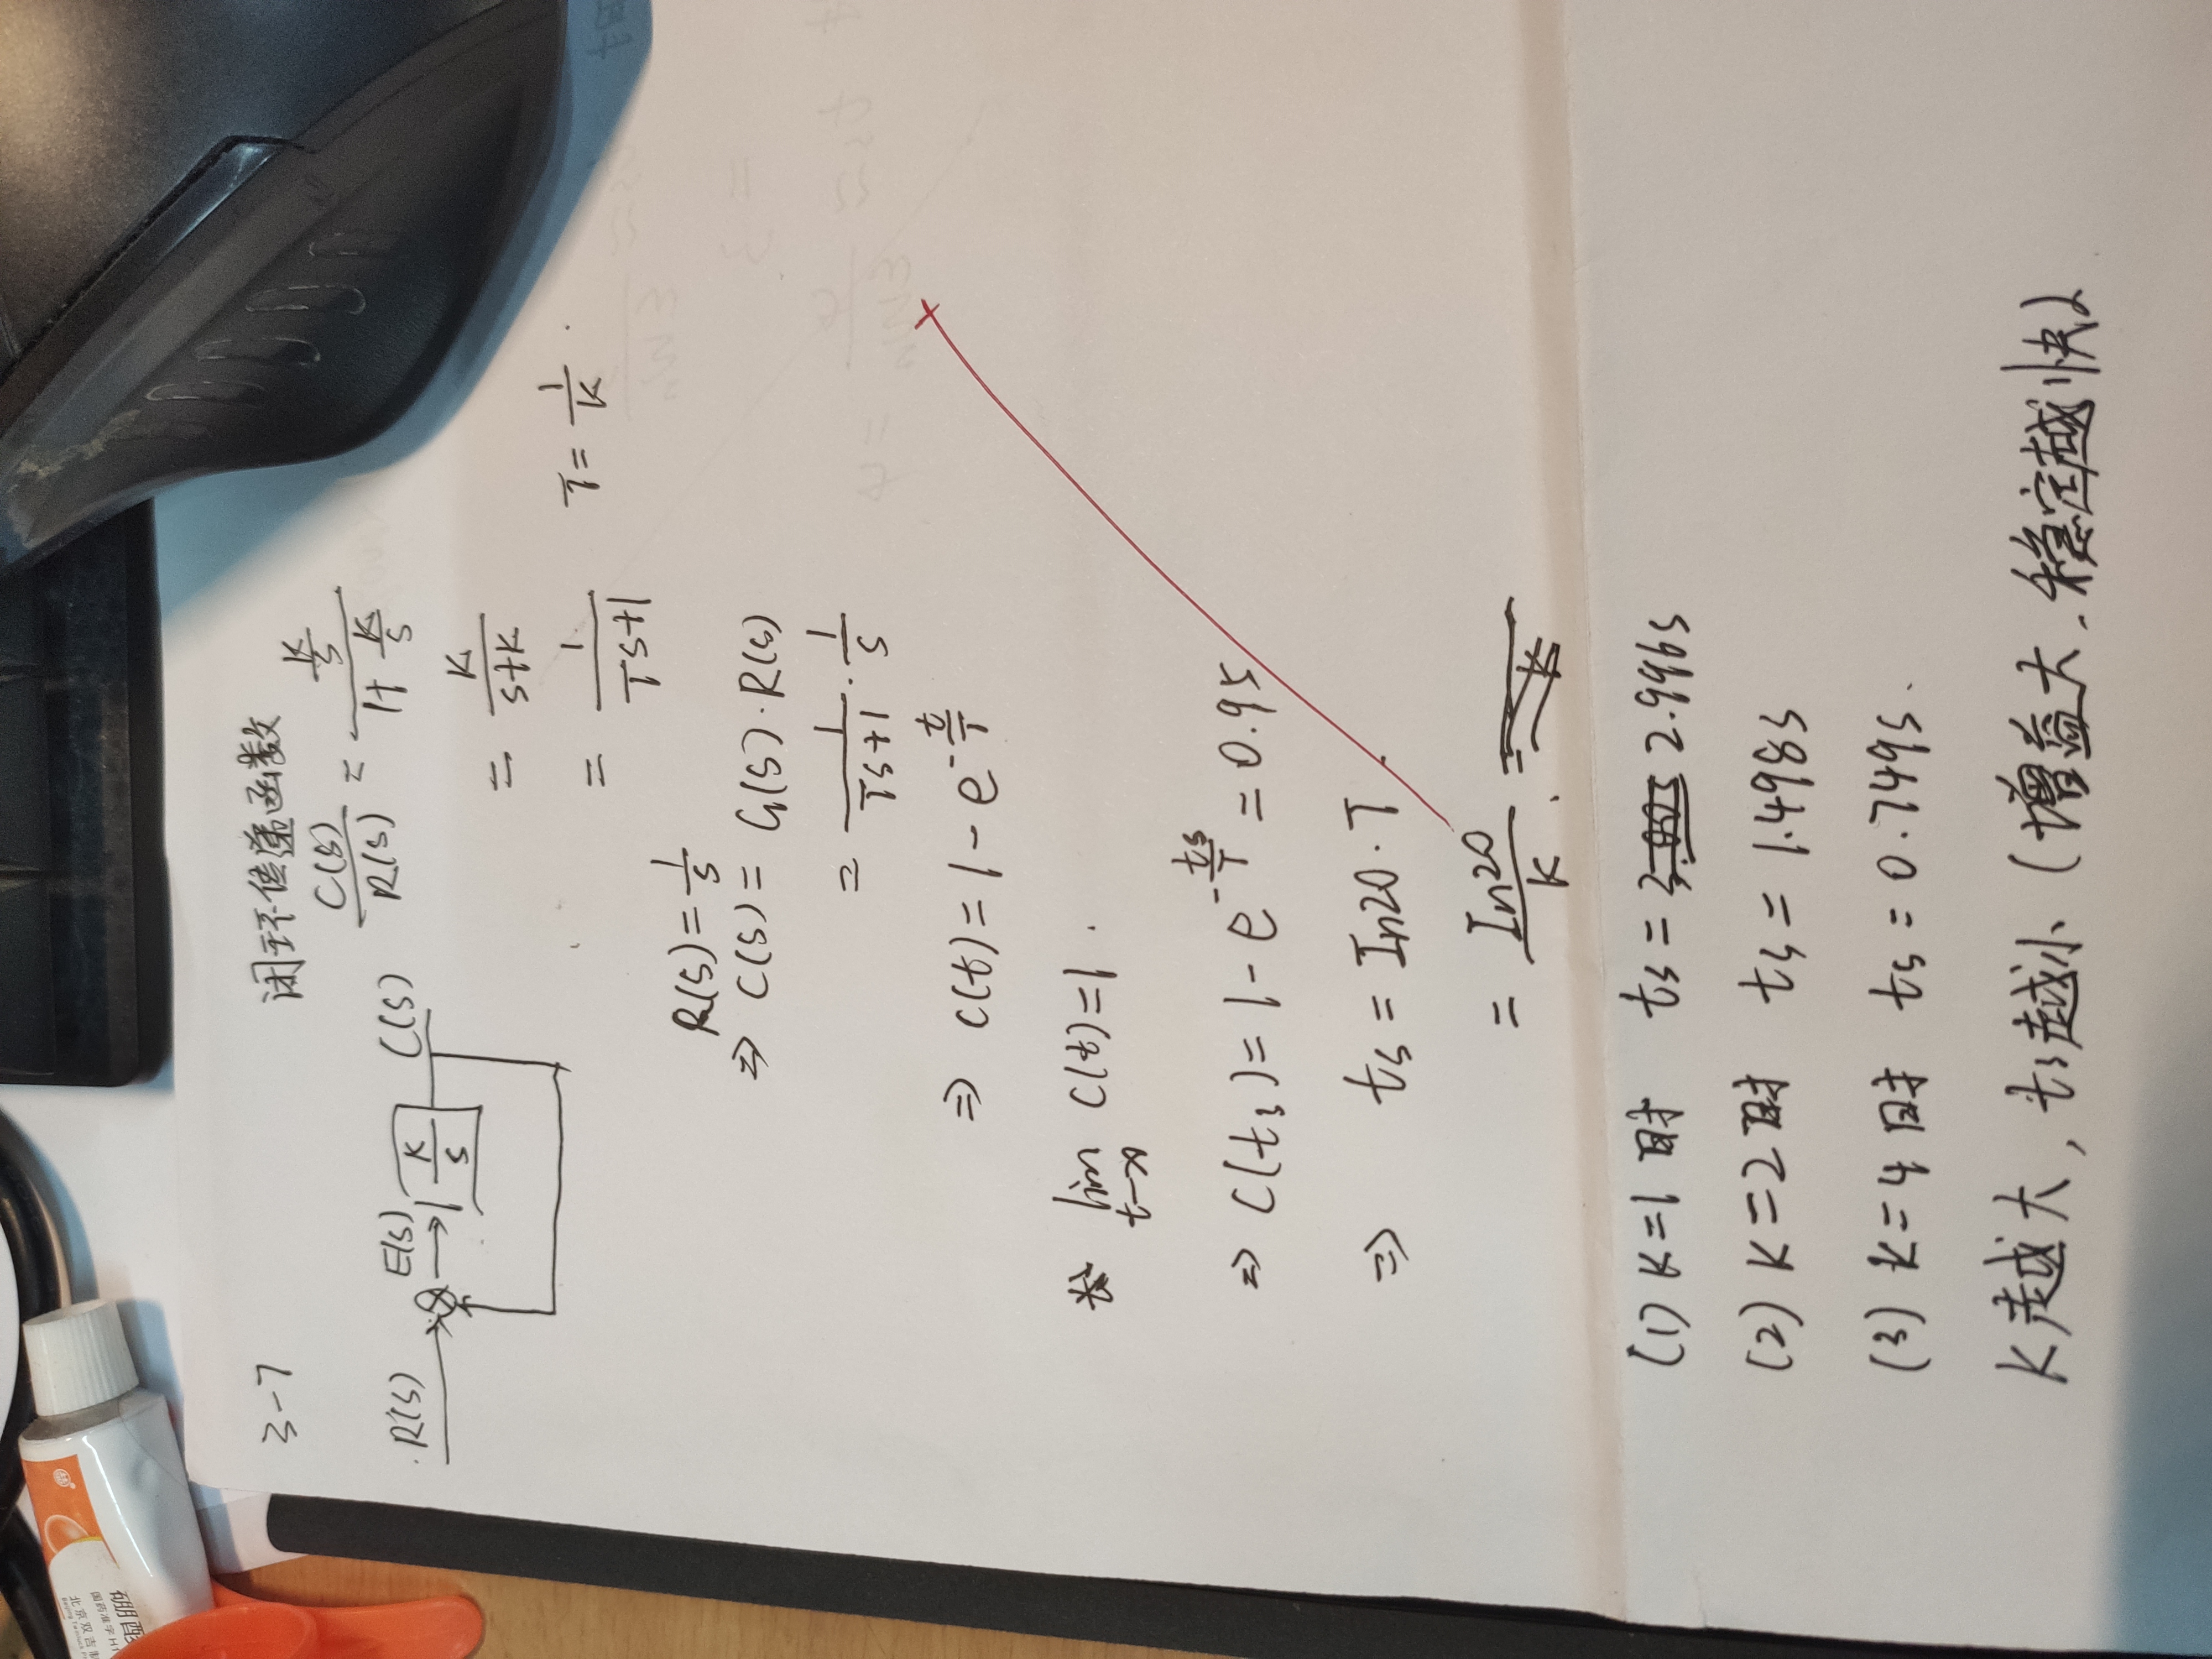 3-7
闭环传递函数
C(s)/R(s) = (K/s)/(1+K/s)
R(s) E(s) K/s C(s)
= K/(s+K)
= 1/(Ts+1) T = 1/K
R(s) = 1/s
⇒ C(s) = G(s)·R(s)
= 1/(Ts+1) · 1/s
⇒ C(t) = 1 - e^(-t/T)
lim t→∞ C(t) = 1 .
⇒ C(ts) = 1 - e^(-ts/T) = 0.95
⇒ ts = In20·T .
= In20/K .
(1) K=1 时 ts = 2.996s
(2) K=2 时 ts = 1.498s
(3) K=4 时 ts = 0.749s.
K越大, ts越小 (增益大, 稳定越快)